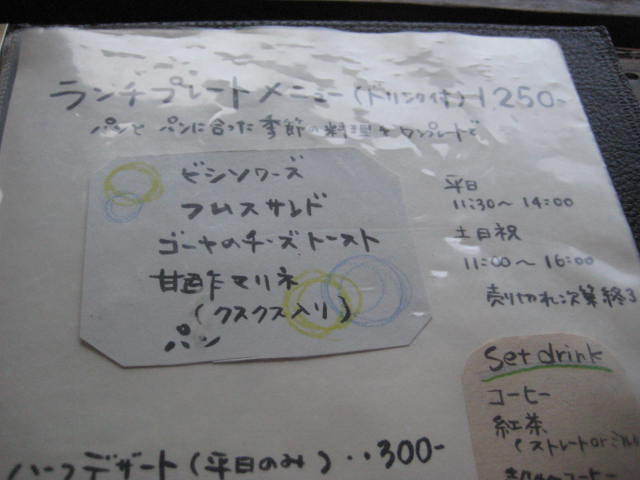 ランチプレートメニュー(ドリンク付)1250-
パンと パンに合った季節の料理をワンプレートで
ビシソワーズ
フムスサンド
ゴーヤのチーズトースト
甘酢マリネ
(クスクス入り)
パン
平日
11:30〜14:00
土日祝
11:00〜16:00
売り切れ次第終了
Set drink
コーヒー
紅茶
(ストレートorミルク
ハーフデザート(平日のみ)‥300-